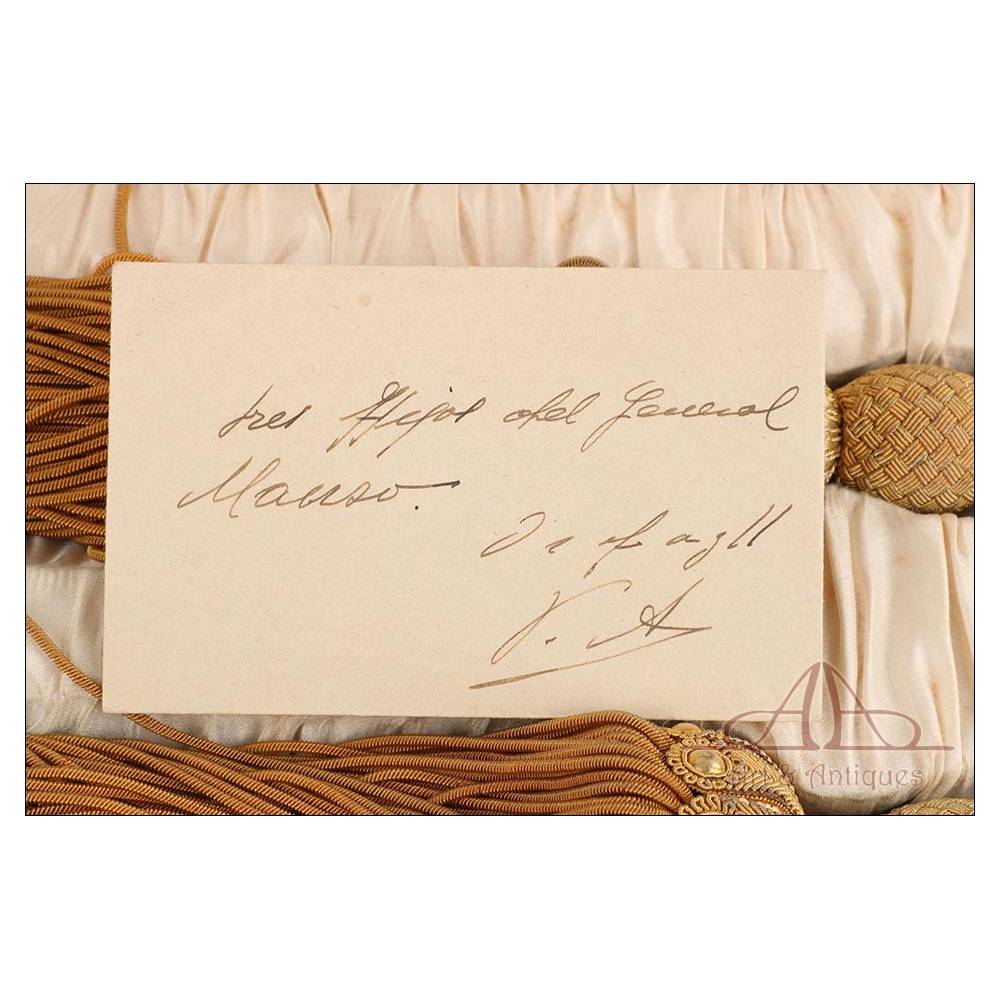 tres Hijos del General
Manso.
V. A
Art & Antiques